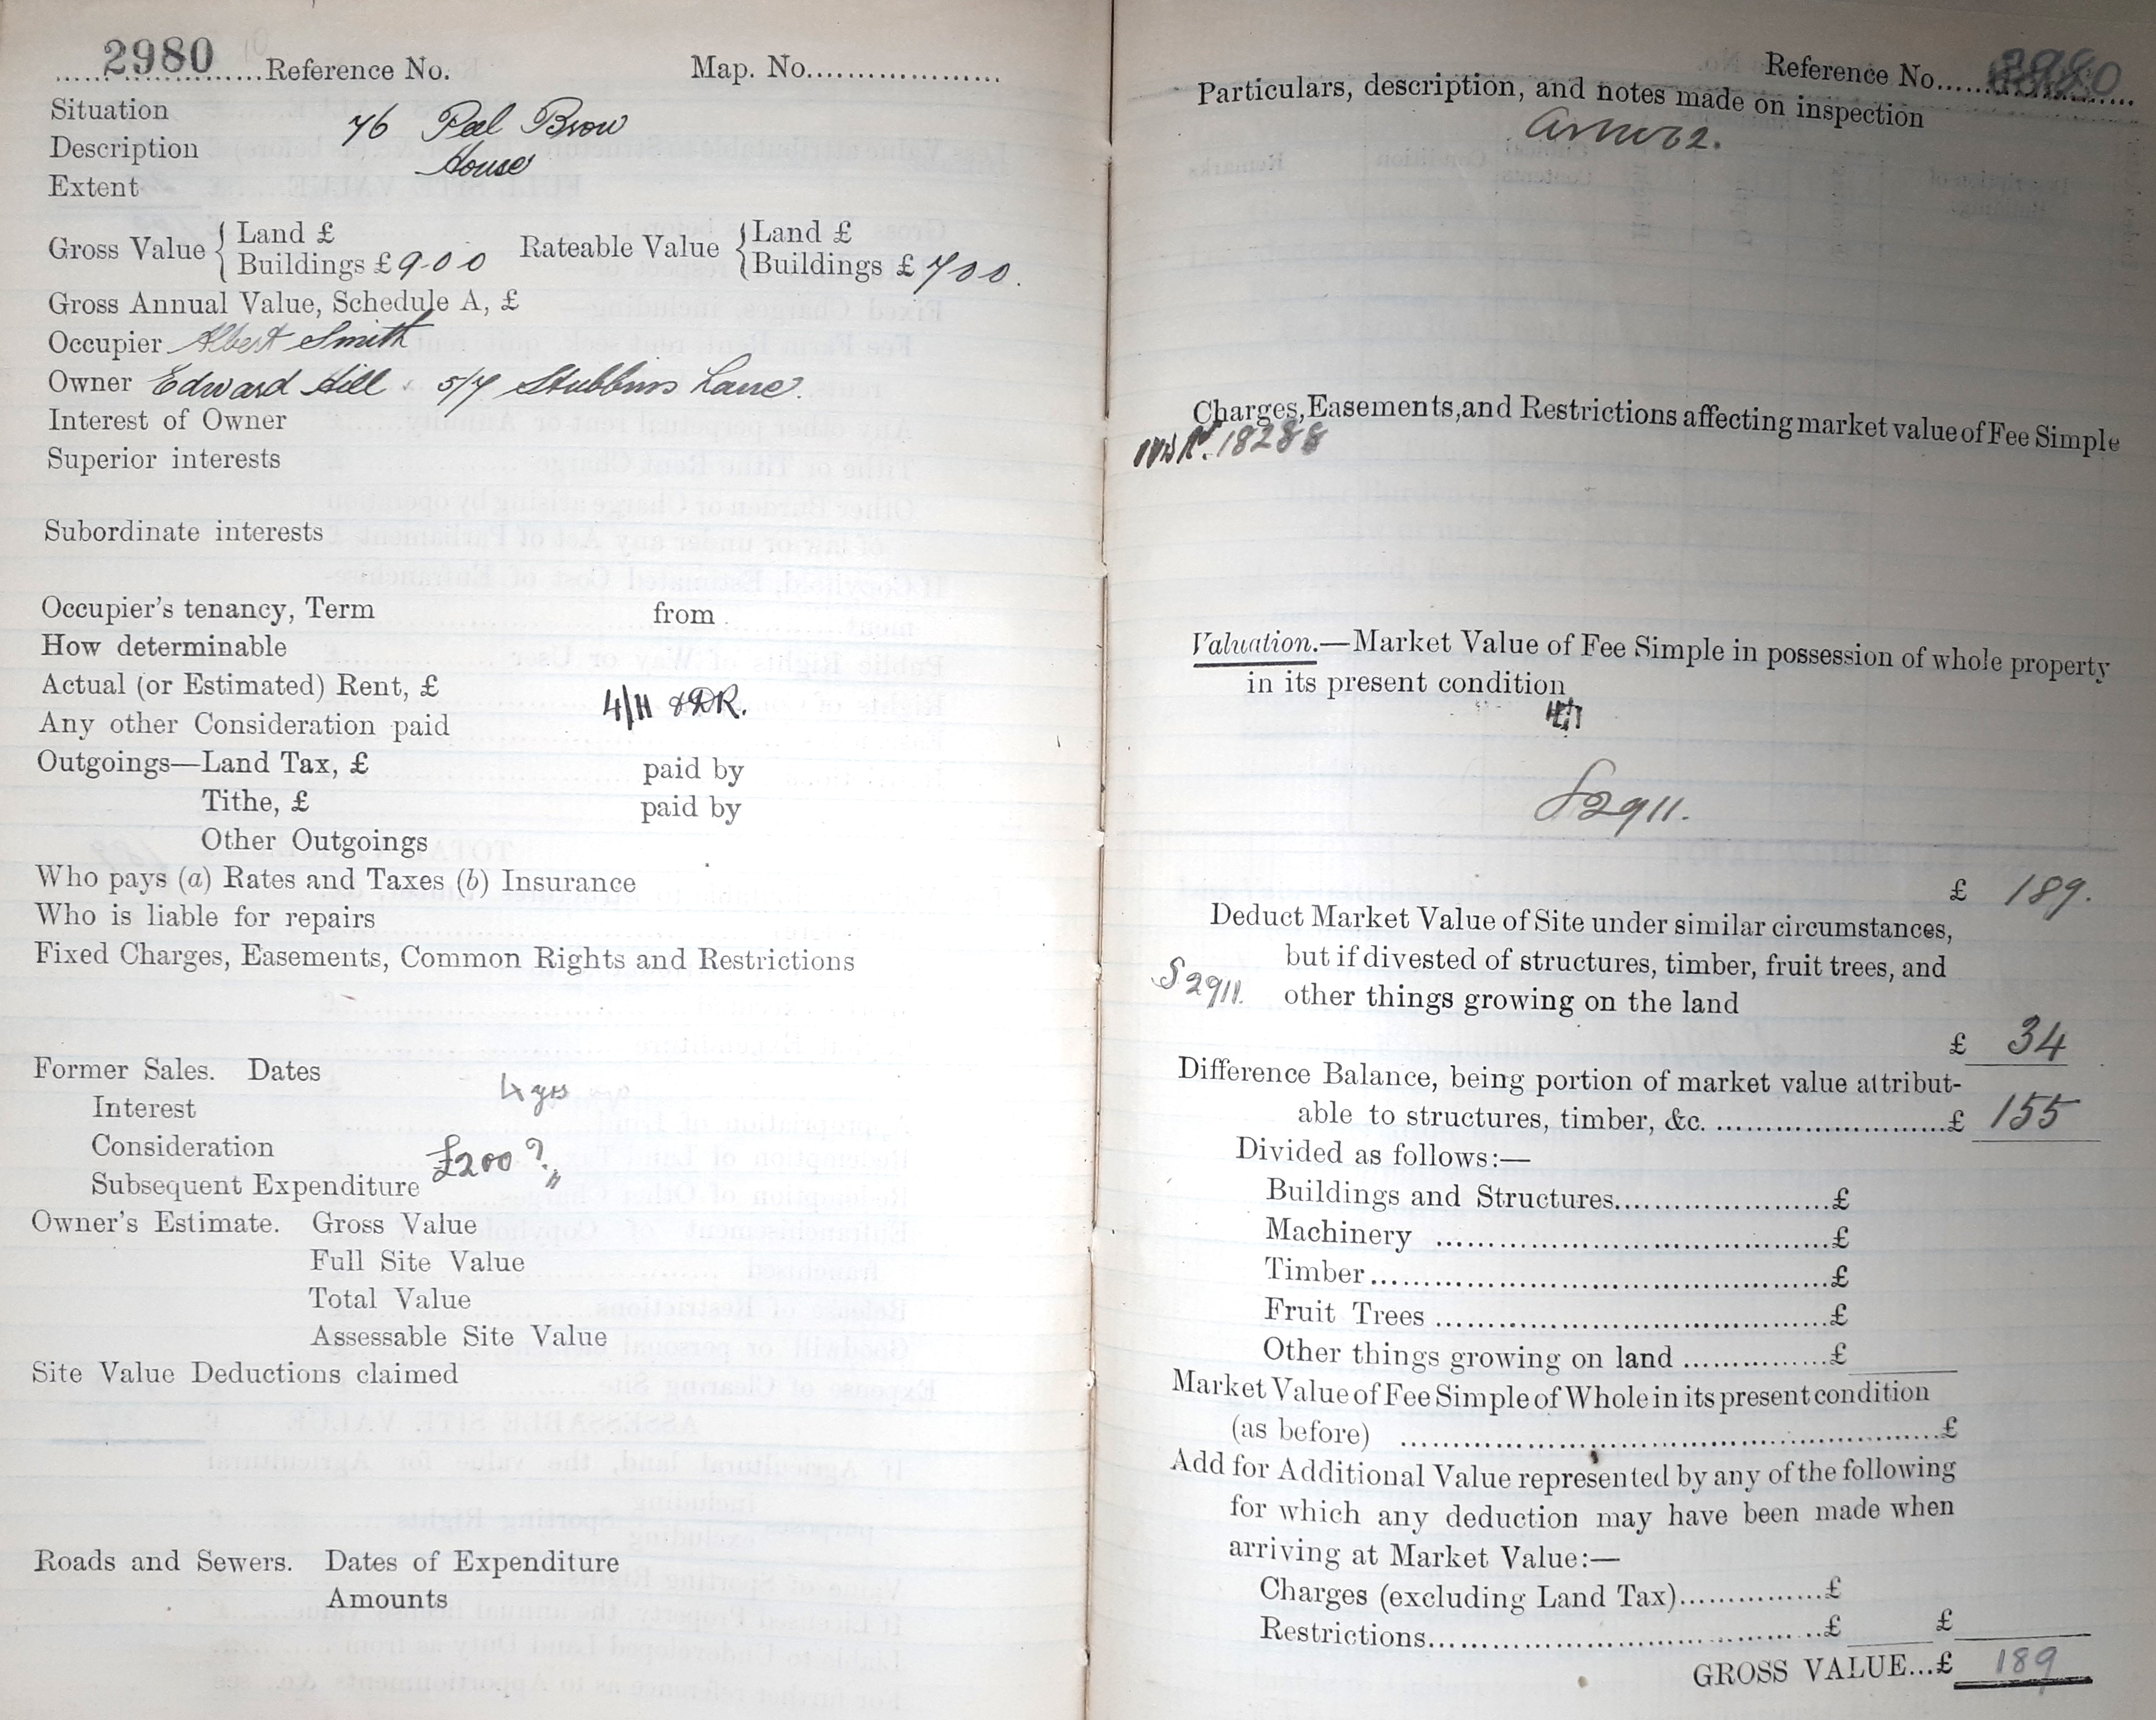 2980 Reference No. Map. No.
Situation 76 Peel Brow
Description House
Extent
Gross Value { Land £ Rateable Value { Land £
Buildings £ 9-0 0 Buildings £ 7 0 0.
Gross Annual Value, Schedule A, £
Occupier Albert Smith
Owner Edward Hill. 57 Stubbins Lane.
Interest of Owner
Superior interests
Subordinate interests
Occupier's tenancy, Term from
How determinable
Actual (or Estimated) Rent, £ 4/11 &DR.
Any other Consideration paid
Outgoings—Land Tax, £ paid by
Tithe, £ paid by
Other Outgoings
Who pays (a) Rates and Taxes (b) Insurance
Who is liable for repairs
Fixed Charges, Easements, Common Rights and Restrictions
Former Sales. Dates 4 yrs
Interest
Consideration £200?
Subsequent Expenditure
Owner's Estimate. Gross Value
Full Site Value
Total Value
Assessable Site Value
Site Value Deductions claimed
Roads and Sewers. Dates of Expenditure
Amounts
Reference No. 2980
Particulars, description, and notes made on inspection
Charges, Easements, and Restrictions affecting market value of Fee Simple
18288
Valuation.—Market Value of Fee Simple in possession of whole property
in its present condition
S2911.
£ 189.
Deduct Market Value of Site under similar circumstances,
but if divested of structures, timber, fruit trees, and
S2911. other things growing on the land
£ 34
Difference Balance, being portion of market value attribut-
able to structures, timber, &c. £ 155
Divided as follows:—
Buildings and Structures £
Machinery £
Timber £
Fruit Trees £
Other things growing on land £
Market Value of Fee Simple of Whole in its present condition
(as before) £
Add for Additional Value represented by any of the following
for which any deduction may have been made when
arriving at Market Value:—
Charges (excluding Land Tax) £
Restrictions £ £
GROSS VALUE...£ 189